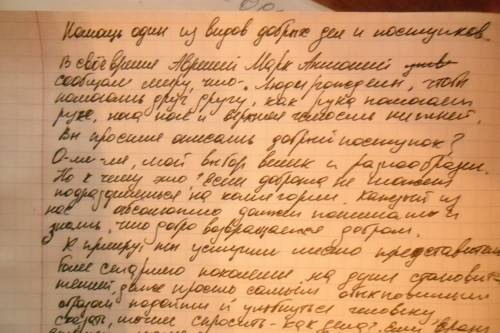 Помощь один из видов добрых дел и поступков.
В своё время Аврелий Марк Антоний
сообщал миру, что "Люди рождены, чтобы
помогать друг другу, как рука помогает
руке, нога ноге и верхняя челюсть нижней.
Вы просите описать добрый поступок?
О-ля-ля, мой выбор велик и разнообразен.
Но к чему это, если доброта не может
подразделяться на категории. Каждый из
нас абсолютно должен понимать и
знать, что добро возвращается добром.
К примеру, мы уступим место представителю
более старшего поколения на душе становит
теплей, даже просто самым обыкновенным
образом подойти и улыбнуться человеку
сказать, точнее спросить - как дела?, если